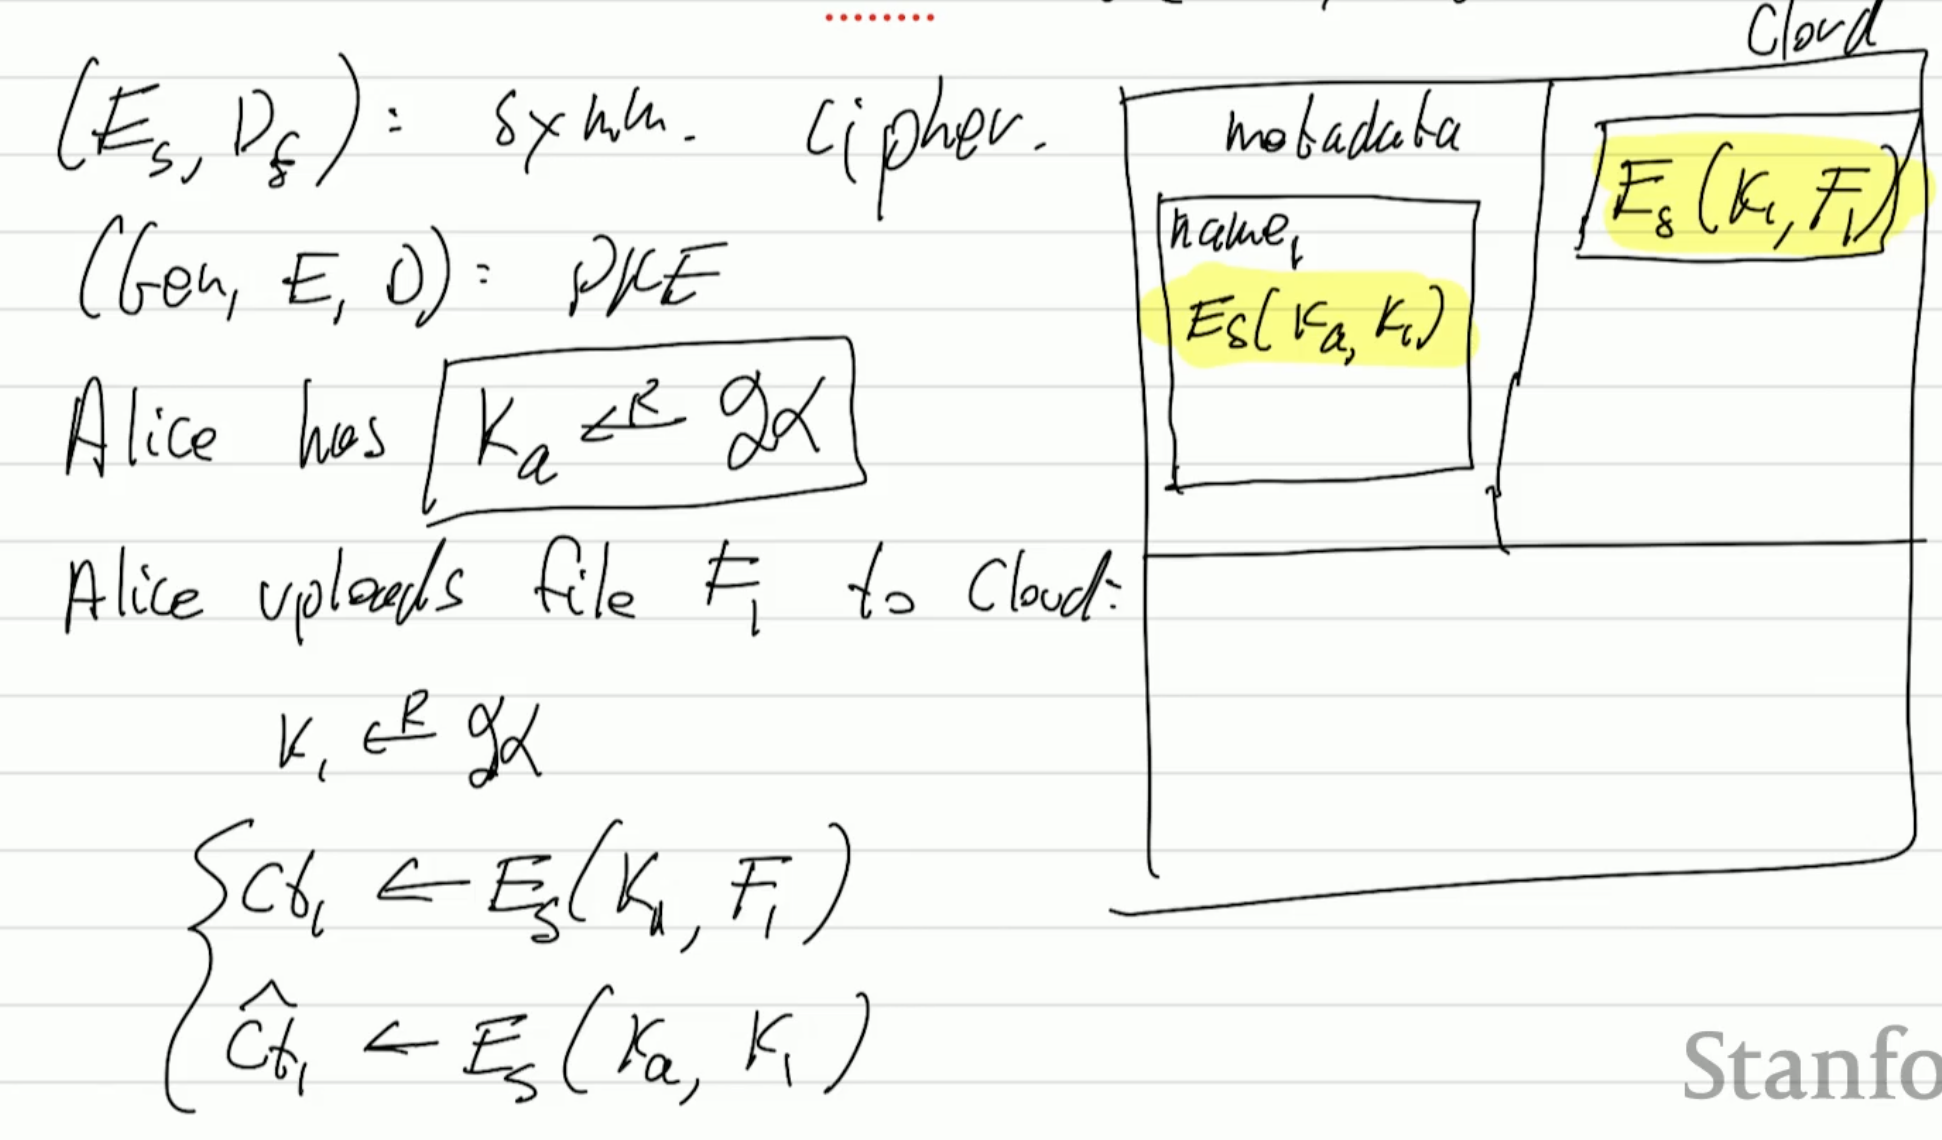 Cloud
(E_s, D_s): symm. cipher.
(Gen, E, D): PKE
Alice has K_a ←^R 𝒦
Alice uploads file F_1 to Cloud:
K_1 ←^R 𝒦
ct_1 ← E_s(K_1, F_1)
ĉt_1 ← E_s(K_a, K_1)
metadata
name_1
E_s(K_a, K_1)
E_s(K_1, F_1)
Stanfo